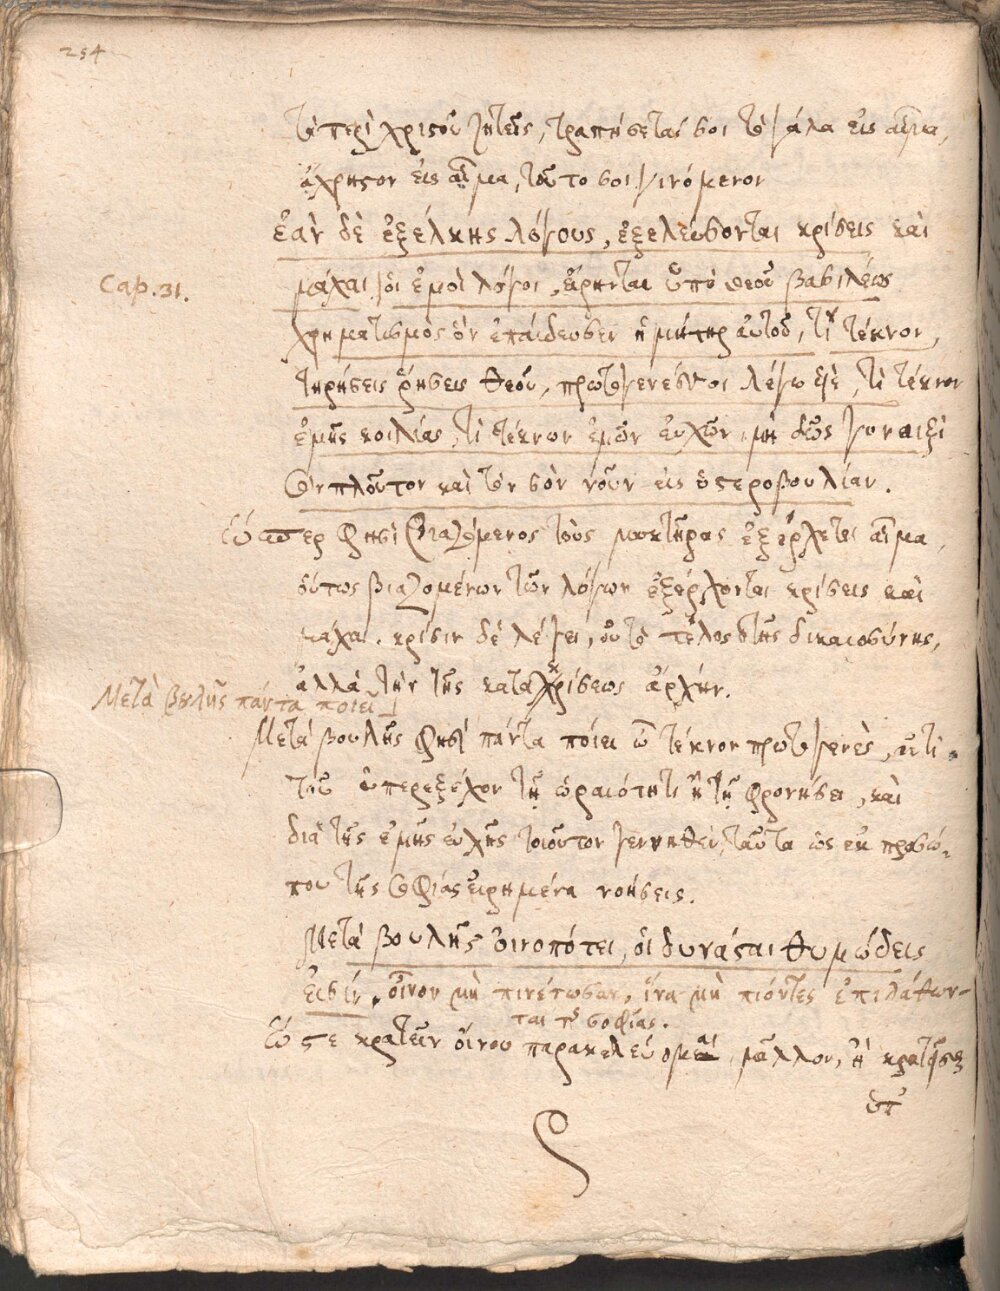 254
τὰ περὶ χριστοῦ ζητεῖς, τραπήσεταί σοι τὸ γάλα εἰς αἷμα,
ἄχρηστον εἰς αἷμα, τοῦτο σοι γινόμενον
ἐὰν δὲ ἐξέλκῃς λόγους, ἐξελεύσονται κρίσεις καὶ
Cap. 31.
μάχαι, οἱ ἐμοὶ λόγοι, εἴρηνται ὑπὸ θεοῦ βασιλέως
χρηματισμὸς ὃν ἐπαίδευσεν ἡ μήτηρ αὐτοῦ, τί τέκνον,
τηρήσεις ῥήσεις θεοῦ, πρωτογενές σοι λέγω υἱὲ, τί τέκνον
ἐμῆς κοιλίας, τί τέκνον ἐμῶν εὐχῶν, μὴ δῷς γυναιξὶ
σὸν πλοῦτον καὶ τὸν σὸν νοῦν εἰς ὑστεροβουλίαν.
ὥσπερ φησὶ βιαζόμενος τοὺς μυκτῆρας ἐξέρχεται αἷμα,
οὕτως βιαζομένων τῶν λόγων ἐξέρχονται κρίσεις καὶ
μάχαι. κρίσιν δὲ λέγει, οὐ τὸ τέλος τῆς δικαιοσύνης,
ἀλλὰ τὴν τῆς κατακρίσεως ἀρχήν.
Μετὰ βουλῆς πάντα ποίει
Μετὰ βουλῆς φησὶ πάντα ποίει ὦ τέκνον πρωτογενὲς,
τοῦ ὑπερεξέχον τῇ ὡραιότητι ἢ τῇ φρονήσει, καὶ
διὰ τῆς ἐμῆς εὐχῆς τοιοῦτον γεννηθέν, ταῦτα ὡς ἐκ προσώ-
που τῆς σοφίας εἰρημένα νοήσεις.
Μετὰ βουλῆς οἰνοπότει, οἱ δυνάσται θυμώδεις
εἰσίν, οἶνον μὴ πινέτωσαν, ἵνα μὴ πιόντες ἐπιλάθων-
ται τῆς σοφίας.
ὥστε κρατεῖν οἴνου παρακελεύομαι, μᾶλλον, ἢ κρατεῖσθαι
ὑπ'